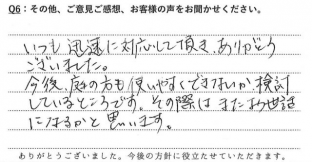 Q6：その他、ご意見ご感想、お客様の声をお聞かせください。
いつも迅速に対応して頂き、ありがとう
ございました。
今後、庭の方も使いやすくできないか、検討
しているところです。その際はまたお世話
になるかと思います。
ありがとうございました。今後の方針に役立たせていただきます。